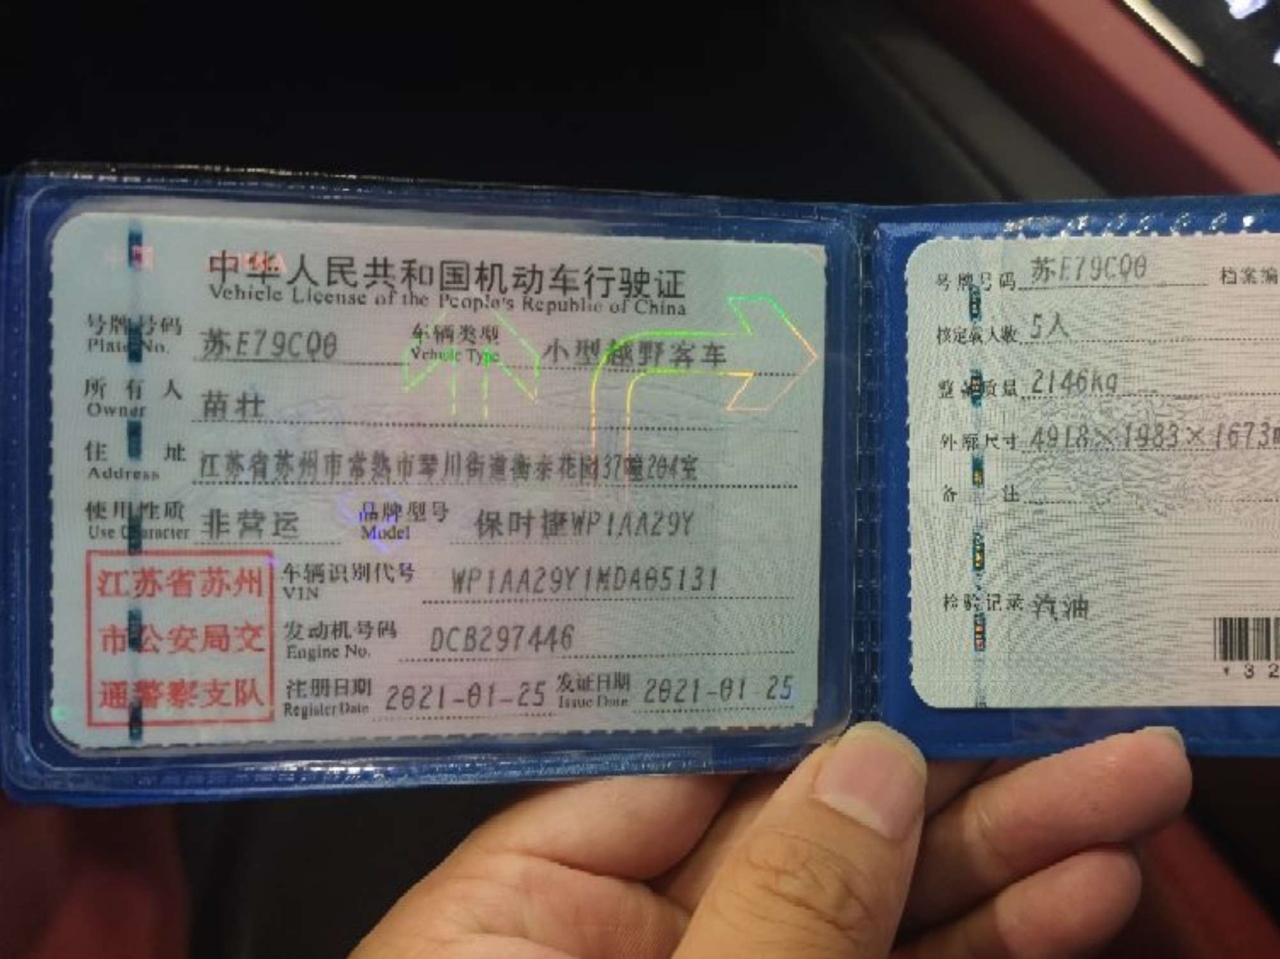 中华人民共和国机动车行驶证
Vehicle License of the People's Republic of China
号牌号码 苏E79CQ0 车辆类型 小型越野客车
Plate No. Vehicle Type
所有人 苗壮
Owner
住址 江苏省苏州市常熟市琴川街道衡泰花园37幢204室
Address
使用性质 非营运 品牌型号 保时捷WP1AA29Y
Use Character Model
江苏省苏州
市公安局交
通警察支队
车辆识别代号 WP1AA29Y1MDA05131
VIN
发动机号码 DCB297446
Engine No.
注册日期 2021-01-25 发证日期 2021-01-25
Register Date Issue Date
号牌号码 苏E79CQ0 档案编
核定载人数 5人
整备质量 2146kg
外廓尺寸 4918×1983×1673m
备注
检验记录 汽油
*32